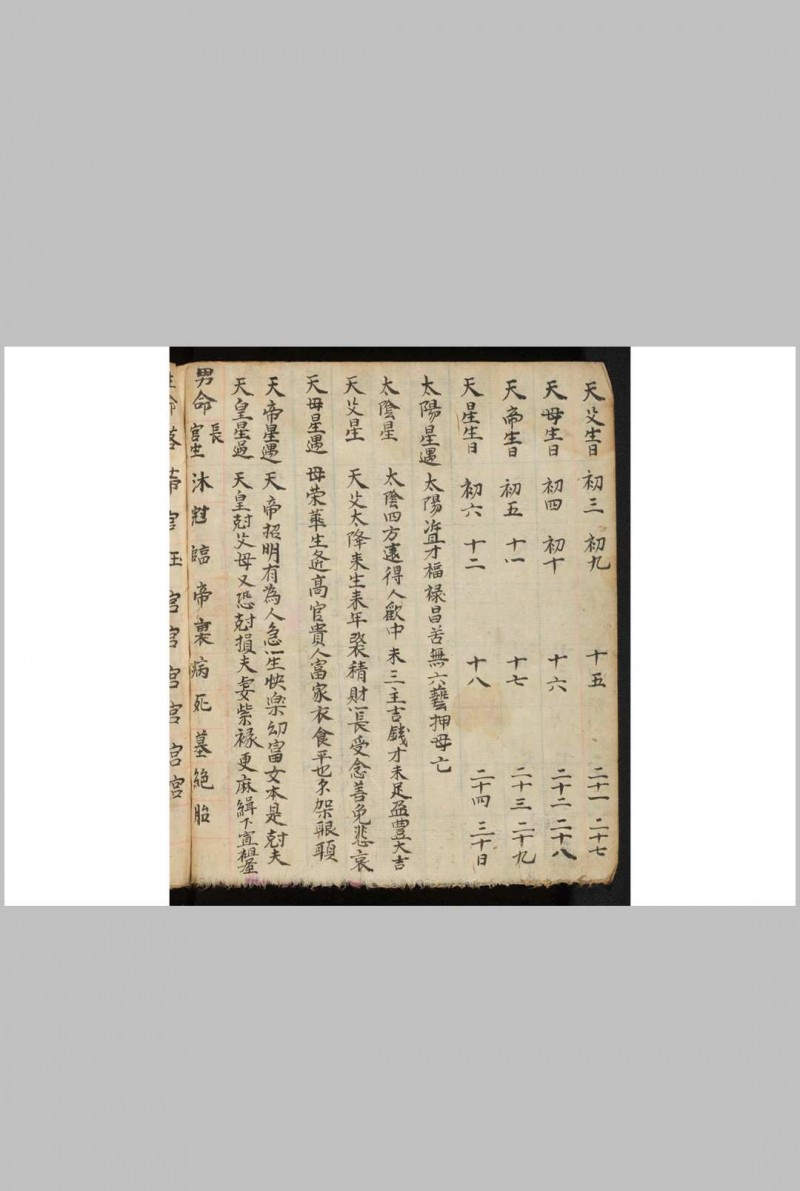 天父生日 初三 初九 十五 二十一 二十七
天母生日 初四 初十 十六 二十二 二十八
天帝生日 初五 十一 十七 二十三 二十九
天星生日 初六 十二 十八 二十四 三十日
太陽星遇 太陽 才福禄昌苦無六藝押母亡
太陰星 太陰四方遠得人歡中未三主吉錢才未足盈豐大吉
天父星 天父太降来生来年 積財 長受念善免悲哀
天母星遇 母荣華生 高官貴人富家衣食平也 架眼
天帝星遇 天帝招明有為人急一生快楽幼富女本是尅夫
天皇星過 天皇尅父母又恐尅損夫妻紫禄更麻緝下宜
男命 長生 宫 沐 臨 帝 病 死 墓 絶 胎
命 宫 宫 宫 宫 宫 宫 宫